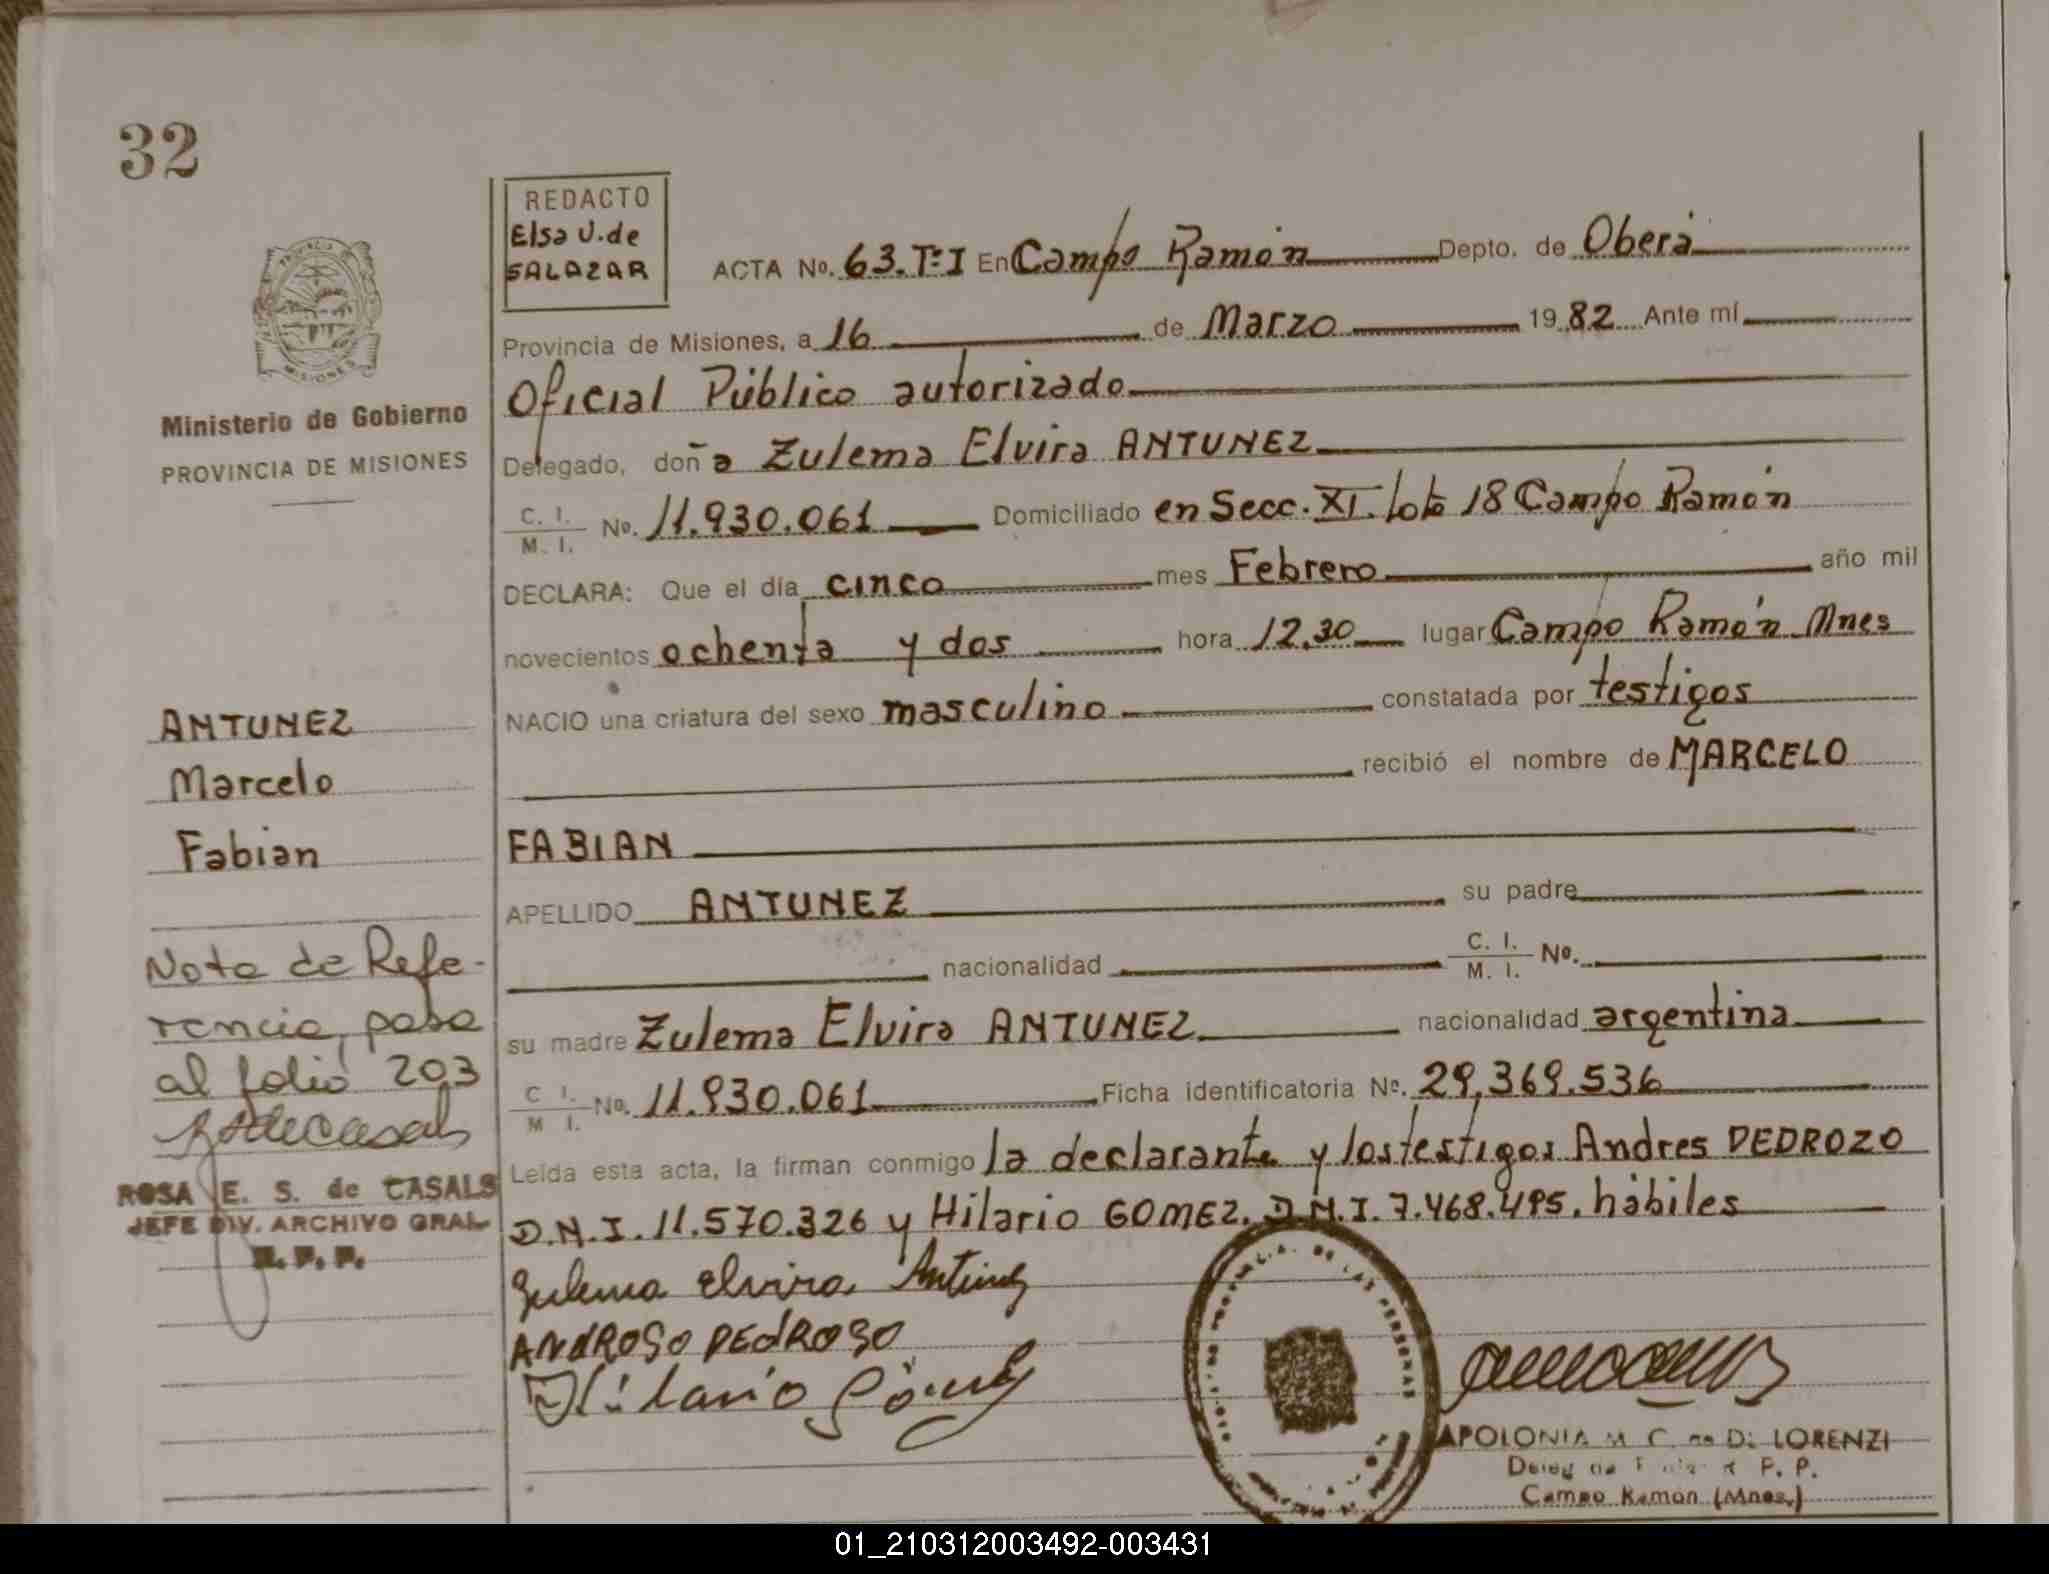 32
REDACTO
Elsa U. de
SALAZAR
ACTA No. 63. Tº I En Campo Ramón Depto. de Oberá
Provincia de Misiones, a 16 de Marzo 1982 Ante mí
Oficial Público autorizado
Delegado, doña Zulema Elvira ANTUNEZ
C. I. M. I. No. 11.930.061 Domiciliado en Secc. XI. lote 18 Campo Ramón
DECLARA: Que el día cinco mes Febrero año mil
novecientos ochenta y dos hora 12,30 lugar Campo Ramón Mnes
NACIO una criatura del sexo masculino constatada por testigos
recibió el nombre de MARCELO
FABIAN
APELLIDO ANTUNEZ su padre
nacionalidad C. I. M. I. No.
su madre Zulema Elvira ANTUNEZ nacionalidad argentina
C. I. M. I. No. 11.930.061 Ficha identificatoria Nº. 29,369.536
Leída esta acta, la firman conmigo la declarante y los testigos Andres PEDROZO
D.N.I. 11.570.326 y Hilario GOMEZ. D.N.I. 7.468.495. hábiles
Zulema Elvira Antunez
ANDROSO PEDROSO
Hilario Gómez
PROVINCIA DE MISIONES
Ministerio de Gobierno
PROVINCIA DE MISIONES
ANTUNEZ
Marcelo
Fabian
Nota de Refe-
rencia, pasa
al folio 203
ROSA E. S. de CASALS
JEFE DIV. ARCHIVO GRAL
R. P. P.
DE LAS PERSONAS
APOLONIA M. C. de DI LORENZI
R. P. P.
Campo Ramón (Mnes.)
01_210312003492-003431